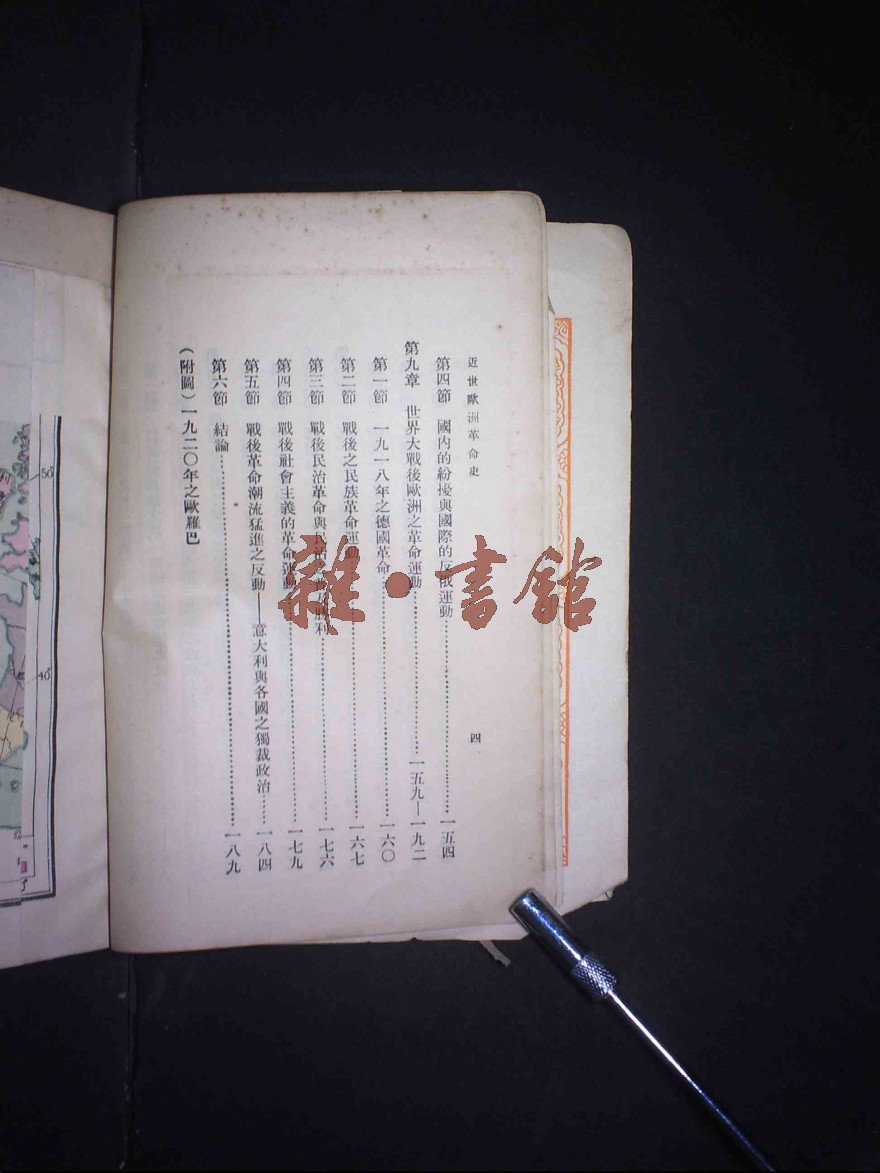 近世歐洲革命史
四
第四節 國內的紛擾與國際的反俄運動……一五四
第九章 世界大戰後歐洲之革命運動……一五九—一九二
第一節 一九一八年之德國革命……一六〇
第二節 戰後之民族革命運動……一六七
第三節 戰後民治革命與民治 勝利……一七六
第四節 戰後社會主義的革命運動……一七九
第五節 戰後革命潮流猛進之反動——意大利與各國之獨裁政治……一八四
第六節 結論……一八九
(附圖)一九二〇年之歐羅巴
雜·書館
50
40